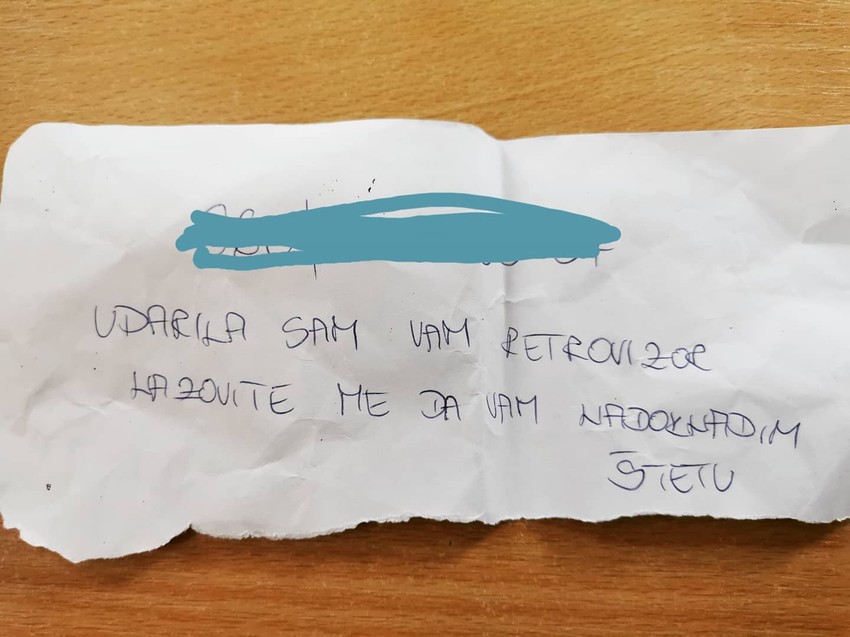 UDARILA SAM VAM RETROVIZOR
NAZOVITE ME DA VAM NADOKNADIM
ŠTETU